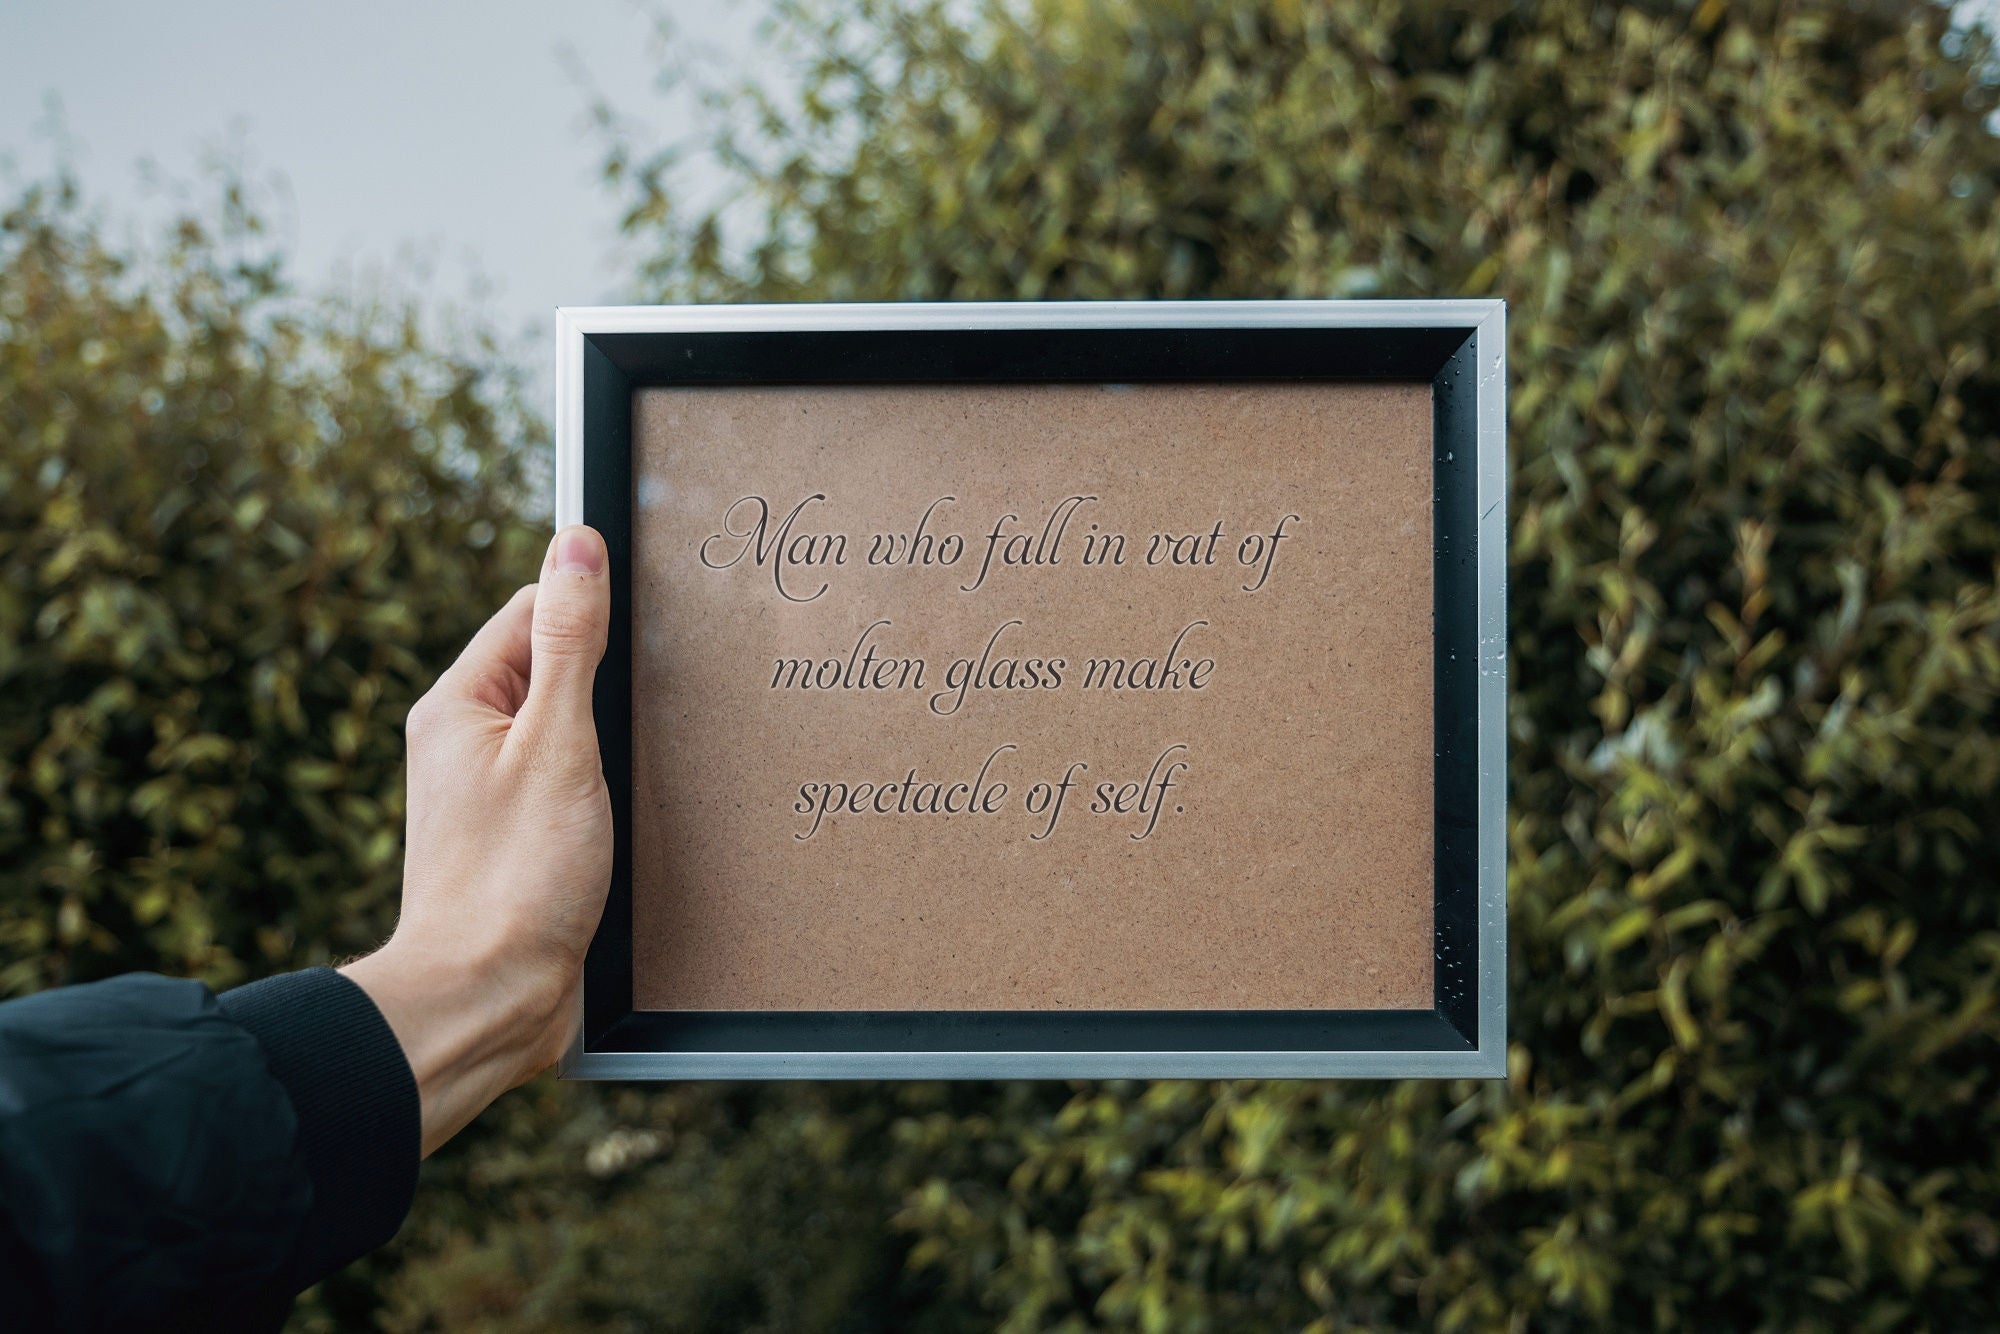 Man who fall in vat of
molten glass make
spectacle of self.